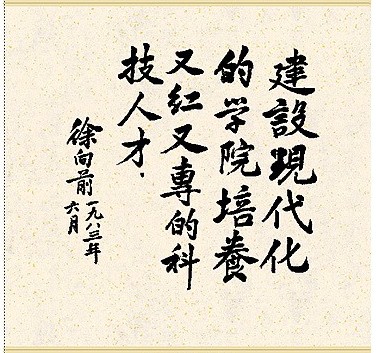 建設現代化
的学院培養
又红又專的科
技人才．
徐向前
一九八三年
六月